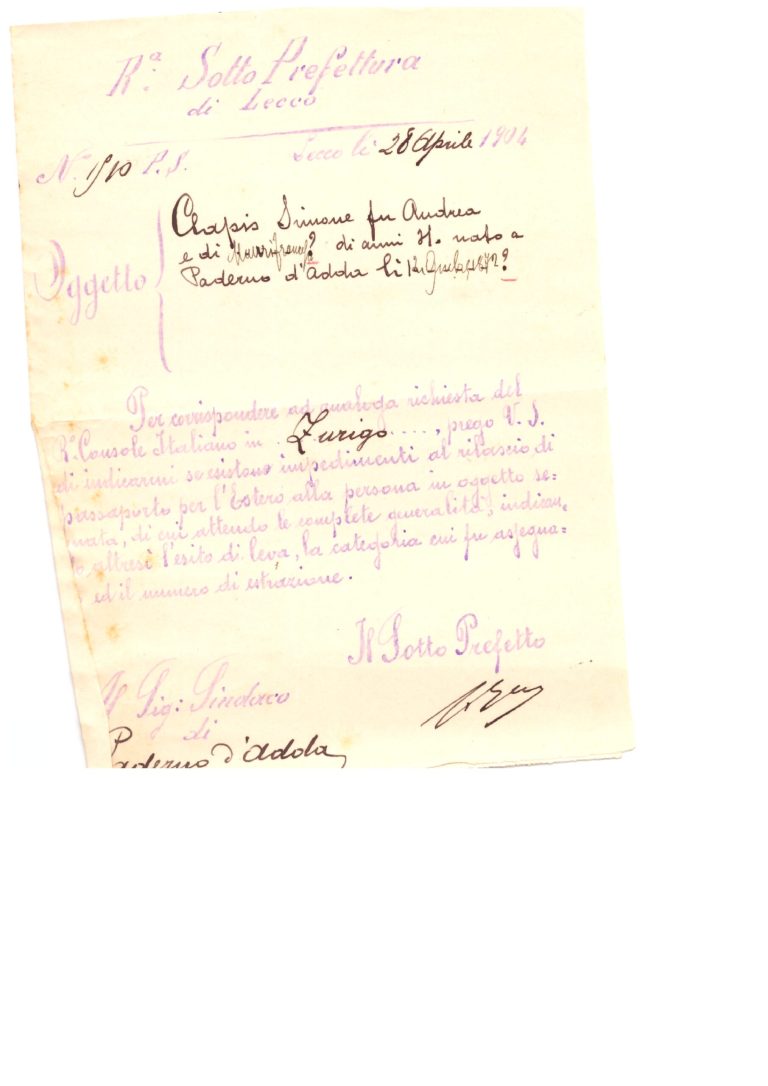 Rª. Sotto Prefettura
di Lecco
N. 1510 P. S. Lecco li 28 Aprile 1904
Oggetto
Clapis Simone fu Andrea
e di ? di anni 31. nato a
Paderno d'Adda li 1872?
Per corrispondere ad analoga richiesta del
R.º Console Italiano in Zurigo ...., prego V. S.
di indicarmi se esistono impedimenti al rilascio di
passaporto per l'Estero alla persona in oggetto se=
nata, di cui attendo le complete generalità, indican=
altresì l'esito di leva, la categoria cui fu assegna=
ed il numero di estrazione.
Il Sotto Prefetto
Al Sig: Sindaco
di
Paderno d'Adda